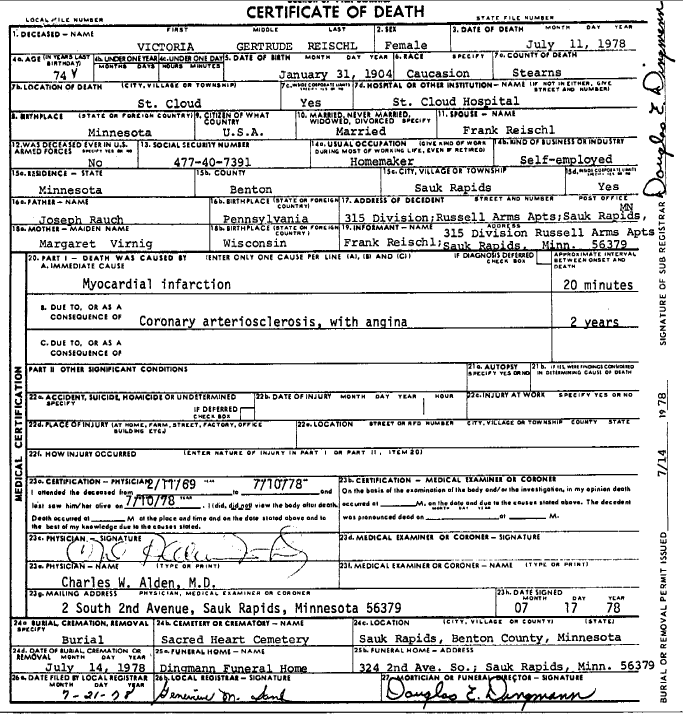 CERTIFICATE OF DEATH
LOCAL FILE NUMBER STATE FILE NUMBER
1. DECEASED – NAME FIRST MIDDLE LAST 2. SEX 3. DATE OF DEATH MONTH DAY YEAR
VICTORIA GERTRUDE REISCHL Female July 11, 1978
4a. AGE (IN YEARS LAST BIRTHDAY) 4b. UNDER ONE YEAR MONTHS DAYS 4c. UNDER ONE DAY HOURS MINUTES 5. DATE OF BIRTH MONTH DAY YEAR 6. RACE SPECIFY 7a. COUNTY OF DEATH
74 January 31, 1904 Caucasion Stearns
7b. LOCATION OF DEATH (CITY, VILLAGE OR TOWNSHIP) 7c. INSIDE CORPORATE LIMITS 7d. HOSPITAL OR OTHER INSTITUTION – NAME (IF NOT IN EITHER, GIVE STREET AND NUMBER)
St. Cloud Yes St. Cloud Hospital
8. BIRTHPLACE (STATE OR FOREIGN COUNTRY) 9. CITIZEN OF WHAT COUNTRY 10. MARRIED, NEVER MARRIED, WIDOWED, DIVORCED SPECIFY 11. SPOUSE – NAME
Minnesota U.S.A. Married Frank Reischl
12. WAS DECEASED EVER IN U.S. ARMED FORCES SPECIFY YES OR NO 13. SOCIAL SECURITY NUMBER 14a. USUAL OCCUPATION (GIVE KIND OF WORK DURING MOST OF WORKING LIFE, EVEN IF RETIRED) 14b. KIND OF BUSINESS OR INDUSTRY
No 477-40-7391 Homemaker Self-employed
15a. RESIDENCE – STATE 15b. COUNTY 15c. CITY, VILLAGE OR TOWNSHIP 15d. INSIDE CORPORATE LIMITS
Minnesota Benton Sauk Rapids Yes
16a. FATHER – NAME 16b. BIRTHPLACE (STATE OR FOREIGN COUNTRY) 17. ADDRESS OF DECEDENT STREET AND NUMBER POST OFFICE
MN
Joseph Rauch Pennsylvania 315 Division;Russell Arms Apts;Sauk Rapids,
18a. MOTHER – MAIDEN NAME 18b. BIRTHPLACE (STATE OR FOREIGN COUNTRY) 19. INFORMANT – NAME ADDRESS
315 Division Russell Arms Apts
Margaret Virnig Wisconsin Frank Reischl; Sauk Rapids, Minn. 56379
20. PART I – DEATH WAS CAUSED BY (ENTER ONLY ONE CAUSE PER LINE (A), (B) AND (C)) IF DIAGNOSIS DEFERRED CHECK BOX APPROXIMATE INTERVAL BETWEEN ONSET AND DEATH
A. IMMEDIATE CAUSE
Myocardial infarction 20 minutes
B. DUE TO, OR AS A CONSEQUENCE OF Coronary arteriosclerosis, with angina 2 years
C. DUE TO, OR AS A CONSEQUENCE OF
PART II OTHER SIGNIFICANT CONDITIONS 21a. AUTOPSY SPECIFY YES OR NO 21b. IF YES, WERE FINDINGS CONSIDERED IN DETERMINING CAUSE OF DEATH
22a. ACCIDENT, SUICIDE, HOMICIDE OR UNDETERMINED SPECIFY IF DEFERRED CHECK BOX 22b. DATE OF INJURY MONTH DAY YEAR HOUR 22c. INJURY AT WORK SPECIFY YES OR NO
22d. PLACE OF INJURY (AT HOME, FARM, STREET, FACTORY, OFFICE BUILDING ETC.) 22e. LOCATION STREET OR RFD NUMBER CITY, VILLAGE OR TOWNSHIP COUNTY STATE
22f. HOW INJURY OCCURRED (ENTER NATURE OF INJURY IN PART I OR PART II, ITEM 20)
MEDICAL CERTIFICATION
23a. CERTIFICATION – PHYSICIAN 2/11/69 7/10/78
I attended the deceased from to and
last saw him/her alive on 7/10/78. I (did, did not) view the body after death.
Death occurred at M. at the place and time and on the date stated above and to
the best of my knowledge due to the causes stated.
23b. CERTIFICATION – MEDICAL EXAMINER OR CORONER
On the basis of the examination of the body and/or the investigation, in my opinion death
occurred at M., on the date and due to the causes stated above. The decedent
MONTH DAY YEAR
was pronounced dead on at M.
23c. PHYSICIAN – SIGNATURE 23d. MEDICAL EXAMINER OR CORONER – SIGNATURE
23e. PHYSICIAN – NAME (TYPE OR PRINT) 23f. MEDICAL EXAMINER OR CORONER – NAME (TYPE OR PRINT)
Charles W. Alden, M.D.
23g. MAILING ADDRESS PHYSICIAN, MEDICAL EXAMINER OR CORONER 23h. DATE SIGNED MONTH DAY YEAR
2 South 2nd Avenue, Sauk Rapids, Minnesota 56379 07 17 78
24a. BURIAL, CREMATION, REMOVAL SPECIFY 24b. CEMETERY OR CREMATORY – NAME 24c. LOCATION (CITY, VILLAGE OR COUNTY) (STATE)
Burial Sacred Heart Cemetery Sauk Rapids, Benton County, Minnesota
24d. DATE OF BURIAL, CREMATION OR REMOVAL MONTH DAY YEAR 25a. FUNERAL HOME – NAME 25b. FUNERAL HOME – ADDRESS
July 14, 1978 Dingmann Funeral Home 324 2nd Ave. So.; Sauk Rapids, Minn. 56379
26a. DATE FILED BY LOCAL REGISTRAR MONTH DAY YEAR 26b. LOCAL REGISTRAR – SIGNATURE 27. MORTICIAN OR FUNERAL DIRECTOR – SIGNATURE
7-21-78 Genevieve M. Douglas E. Dingmann
BURIAL OR REMOVAL PERMIT ISSUED 7/14 1978 SIGNATURE OF SUB REGISTRAR Douglas E. Dingmann